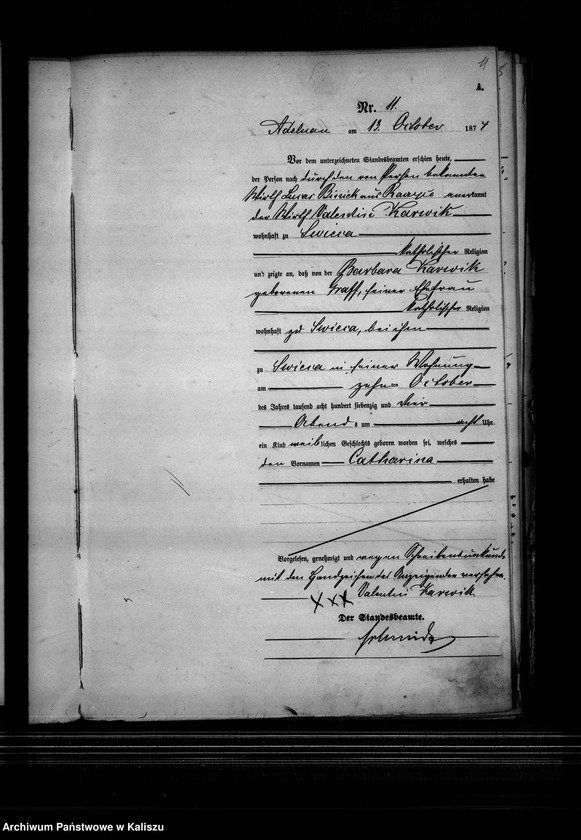 11
A.
Nr. 11.
Adelnau am 13. October 1874
Vor dem unterzeichneten Standesbeamten erschien heute,
der Person nach durch den von Person bekannten
Wirth Lucas aus anerkannt
der Wirth Valentin Karwik
wohnhaft zu Swieca
katholischer Religion
und zeigte an, daß von der Barbara Karwik
geborenen Graff, seiner Ehefrau
katholischer Religion
wohnhaft zu Swieca, bei ihm
zu Swieca in seiner Wohnung
am zehn October
des Jahres tausend acht hundert siebenzig und vier
Abends um acht Uhr
ein Kind weiblichen Geschlechts geboren worden sei, welches
den Vornamen Catharina
erhalten habe
Vorgelesen, genehmigt und wegen Schreibensunkunde
mit den Handzeichen des Anzeigenden versehen.
XXX Valentin Karwik.
Der Standesbeamte.
Archiwum Państwowe w Kaliszu